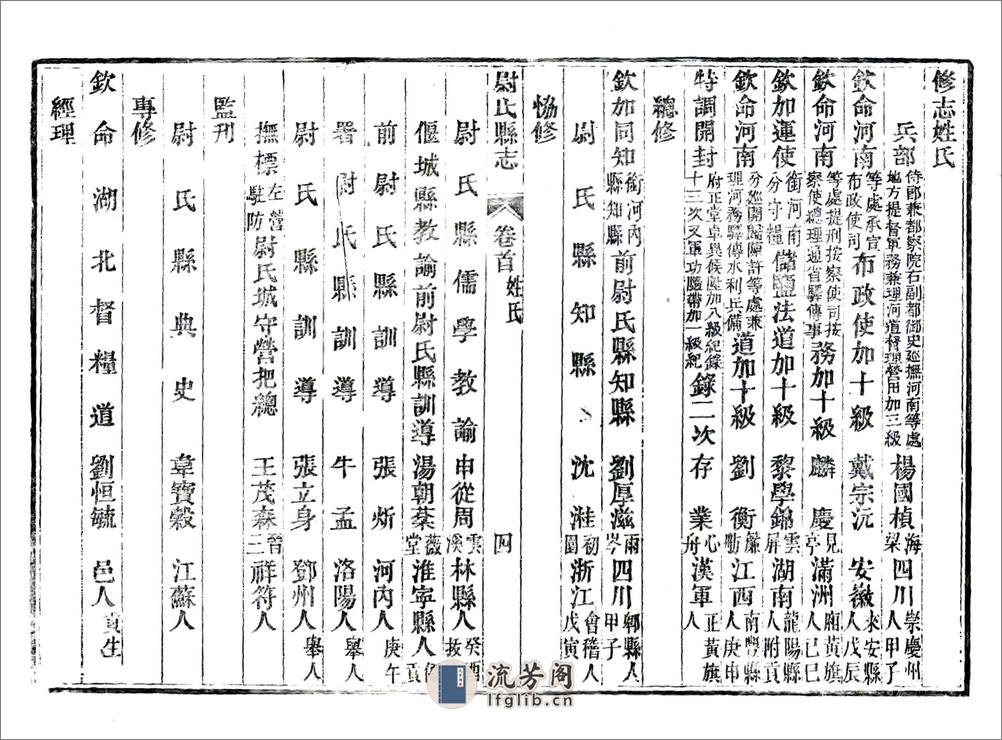 修志姓氏
兵部侍郎兼都察院右副都御史巡撫河南等處地方提督軍務兼理河道督理營田加三級楊國楨海梁四川崇慶州人甲子
欽命河南等處承宣布政使司布政使加十級戴宗沅安徽來安縣人戊辰
欽命河南等處提刑按察使司按察使總理通省驛傳事務加十級麟慶見亭滿洲廂黃旗人己巳
欽加運使銜河南分守糧儲鹽法道加十級黎學錦雲屏湖南龍陽縣人附貢
欽命河南分巡開歸陳許等處兼理河務驛傳水利兵備道加十級劉衡簾舫江西南豐縣人庚申
特調開封府正堂卓異候陞加八級紀錄十三次又軍功隨帶加一級紀錄二次存業心舟漢軍正黃旗人
總修
欽加同知銜河內縣知縣前尉氏縣知縣劉厚滋雨岑四川郫縣人甲子
尉氏縣知縣沈溎初園浙江會稽人戊寅
恊修
尉氏縣志 卷首 姓氏 四
尉氏縣儒學教諭申從周雲溪林縣人癸酉拔
偃城縣教諭前尉氏縣訓導湯朝薇堂淮寧縣人貢
前尉氏縣訓導張炘河內人庚午
署尉氏縣訓導牛孟洛陽人舉人
尉氏縣訓導張立身鄧州人舉人
撫標左營駐防尉氏城守營把總王茂森晉三祥符人
監刊
尉氏縣典史韋寶穀江蘇人
專修
欽命湖北督糧道劉恒毓邑人生
經理
流芳阁
lfglib.cn